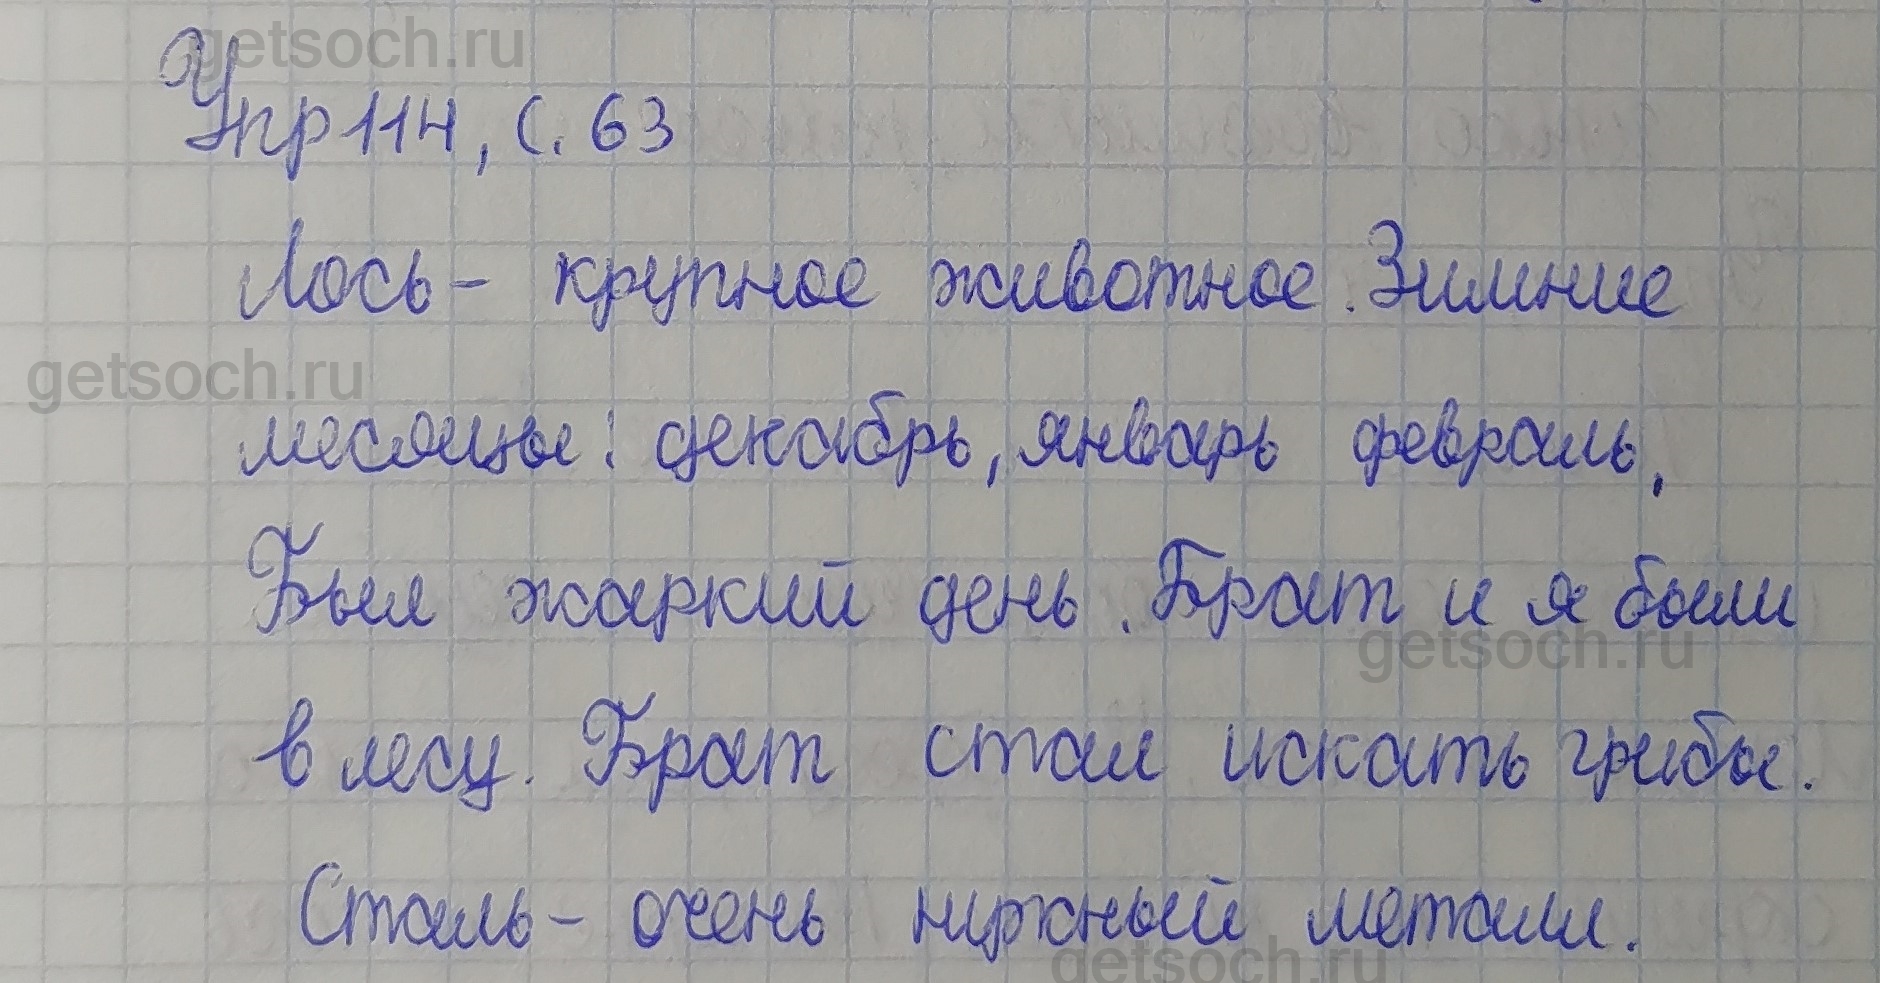 getsoch.ru
Упр 114, с. 63
Лось - крупное животное. Зимние
getsoch.ru
месяцы: декабрь, январь февраль,
Был жаркий день. Брат и я были
getsoch.ru
в лесу. Брат стал искать грибы.
Сталь - очень нужный металл.
getsoch.ru